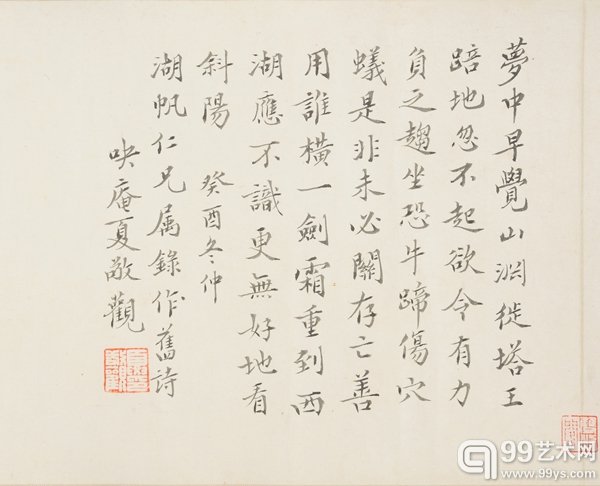 夢中早覺山淵徙塔王
踣地忽不起欲令有力
負之趨坐恐牛蹄傷穴
蟻是非未必關存亡善
用誰橫一劍霜重到西
湖應不識更無好地看
斜陽 癸酉冬仲
湖帆仁兄属錄作舊詩
吷庵夏敬觀
99艺术网
www.99ys.com